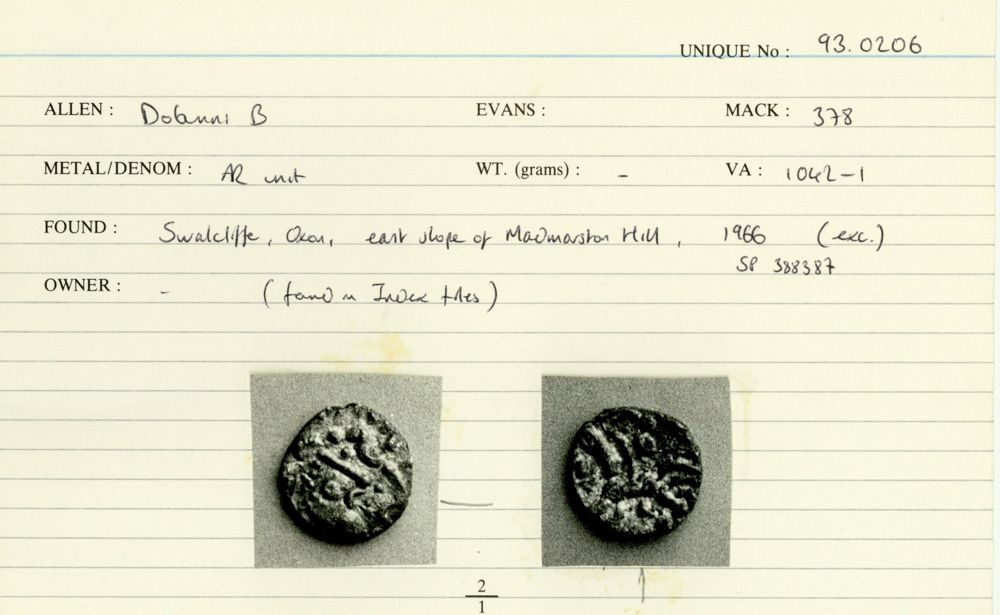 UNIQUE No : 93.0206
ALLEN : Dobunni B EVANS : MACK : 378
METAL/DENOM : AR unit WT. (grams) : - VA : 1042-1
FOUND : Swalcliffe, Oxon, east slope of Madmarston Hill, 1966 (exc.)
SP 388387
OWNER : - (found in Index files)
2
1